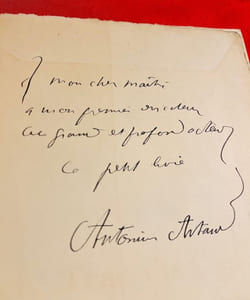 à mon cher maître
à mon premier
ce grand et profond acteur
ce petit livre
Antonin Artaud